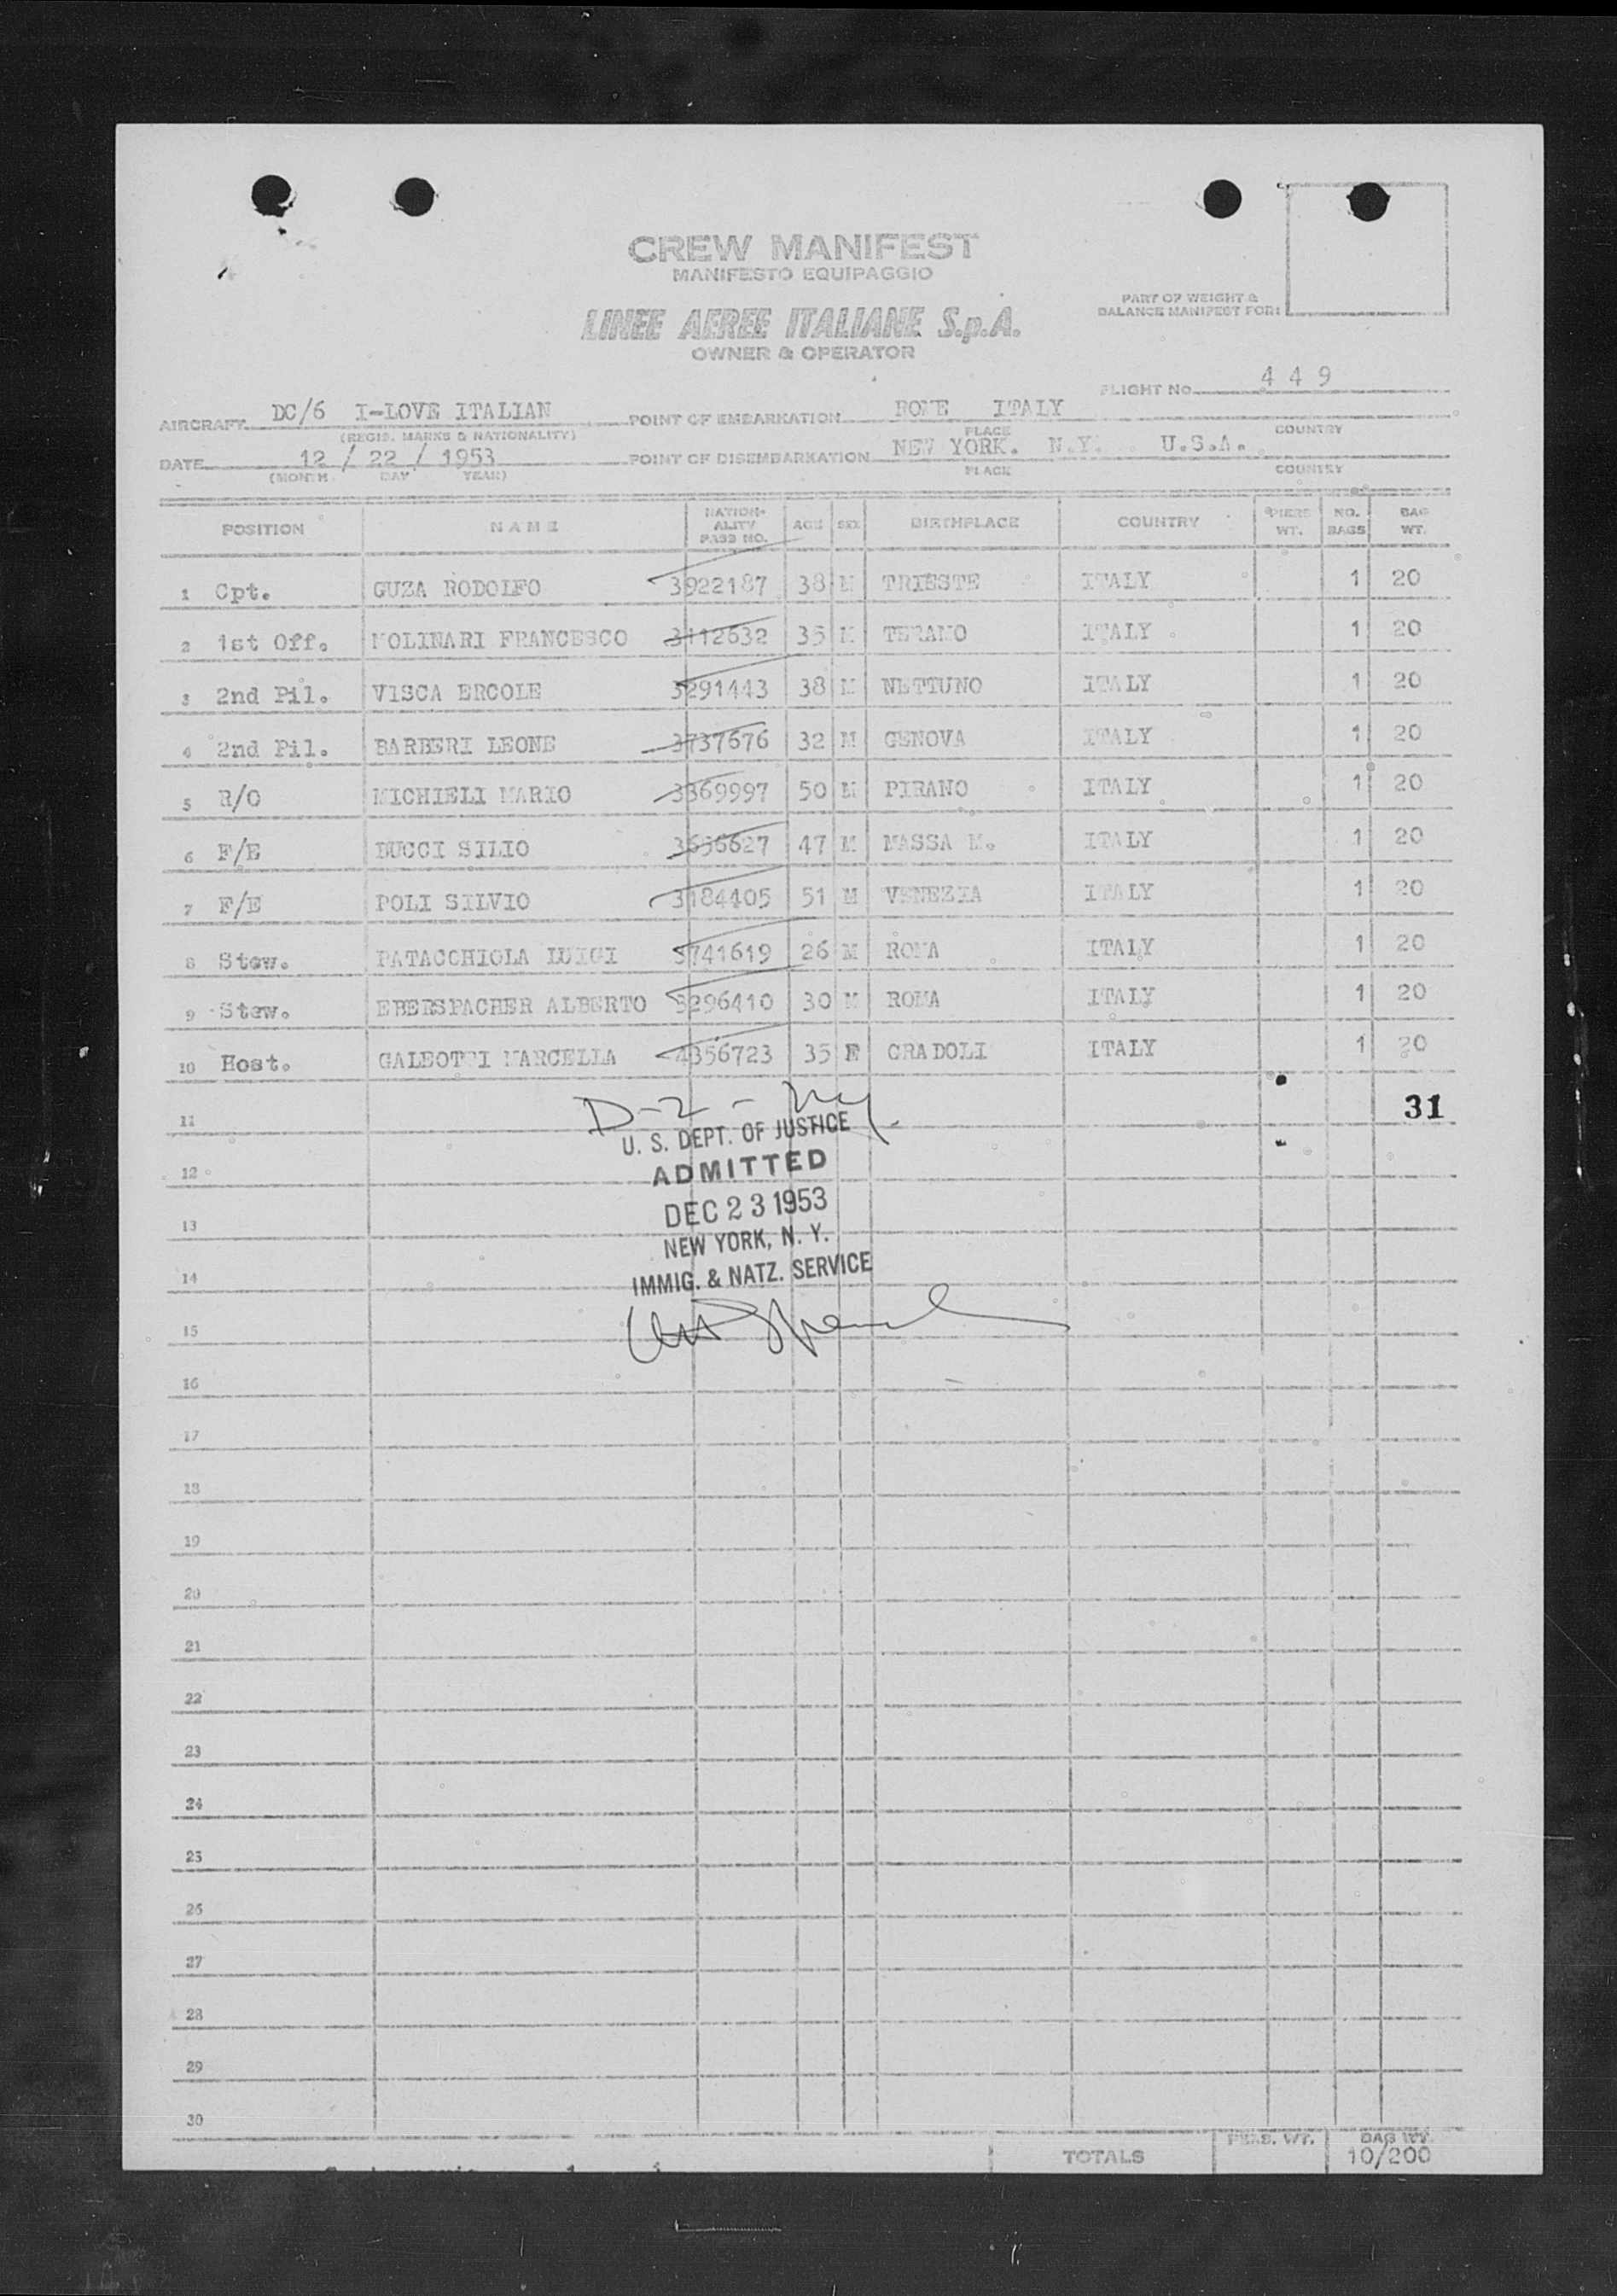 CREW MANIFEST
MANIFESTO EQUIPAGGIO
LINEE AEREE ITALIANE S.p.A.
OWNER & OPERATOR
PART OF WEIGHT &
BALANCE MANIFEST FOR:
FLIGHT No. 4 4 9
AIRCRAFT DC/6 I-LOVE ITALIAN POINT OF EMBARKATION ROME ITALY
(REGIS. MARKS & NATIONALITY) PLACE COUNTRY
DATE 12 / 22 / 1953 POINT OF DISEMBARKATION NEW YORK. N.Y. U.S.A.
(MONTH DAY YEAR) PLACE COUNTRY
POSITION NAME NATION-ALITY PASS NO. AGE SEX BIRTHPLACE COUNTRY WT. NO. BAGS BAG WT.
1 Cpt. GUZA RODOLFO 3922187 38 M TRIESTE ITALY 1 20
2 1st Off. MOLINARI FRANCESCO 3112632 35 M TERAMO ITALY 1 20
3 2nd Pil. VISCA ERCOLE 3291443 38 M NETTUNO ITALY 1 20
4 2nd Pil. BARBERI LEONE 3737676 32 M GENOVA ITALY 1 20
5 R/O MICHIELI MARIO 3369997 50 M PIRANO ITALY 1 20
6 F/E DUCCI SILIO 3656627 47 M MASSA M. ITALY 1 20
7 F/E POLI SILVIO 3184405 51 M VENEZIA ITALY 1 20
8 Stew. PATACCHIOLA LUIGI 3741619 26 M ROMA ITALY 1 20
9 Stew. EBERSPACHER ALBERTO 3296410 30 M ROMA ITALY 1 20
10 Host. GALEOTTI MARCELLA 4356723 35 F GRADOLI ITALY 1 20
D-2 - NY
11 31
U. S. DEPT. OF JUSTICE
12 ADMITTED
13 DEC 23 1953
NEW YORK, N. Y.
14 IMMIG. & NATZ. SERVICE
15
16
17
18
19
20
21
22
23
24
25
26
27
28
29
30
TOTALS PERS. WT. BAG WT.
10/200